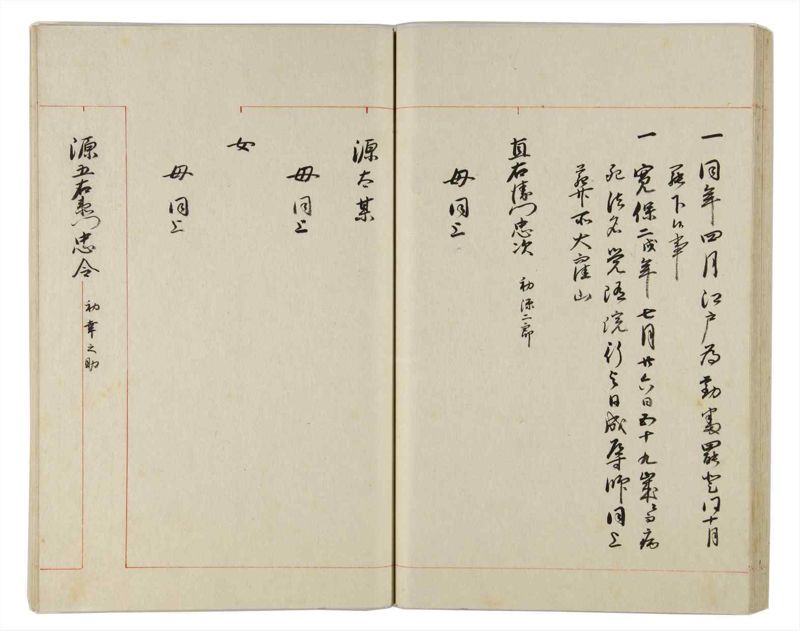 一同年四月江戸為勤番罷登同十月
罷下候事
一寛保二戌年七月廿六日五十九歳ニ而病
死法名覚随院行与日成 師同上
葬所大窪山
直右衛門忠次 初源二郎
母同上
源太某
母同上
女
母同上
源五右衛門忠令 初幸之助